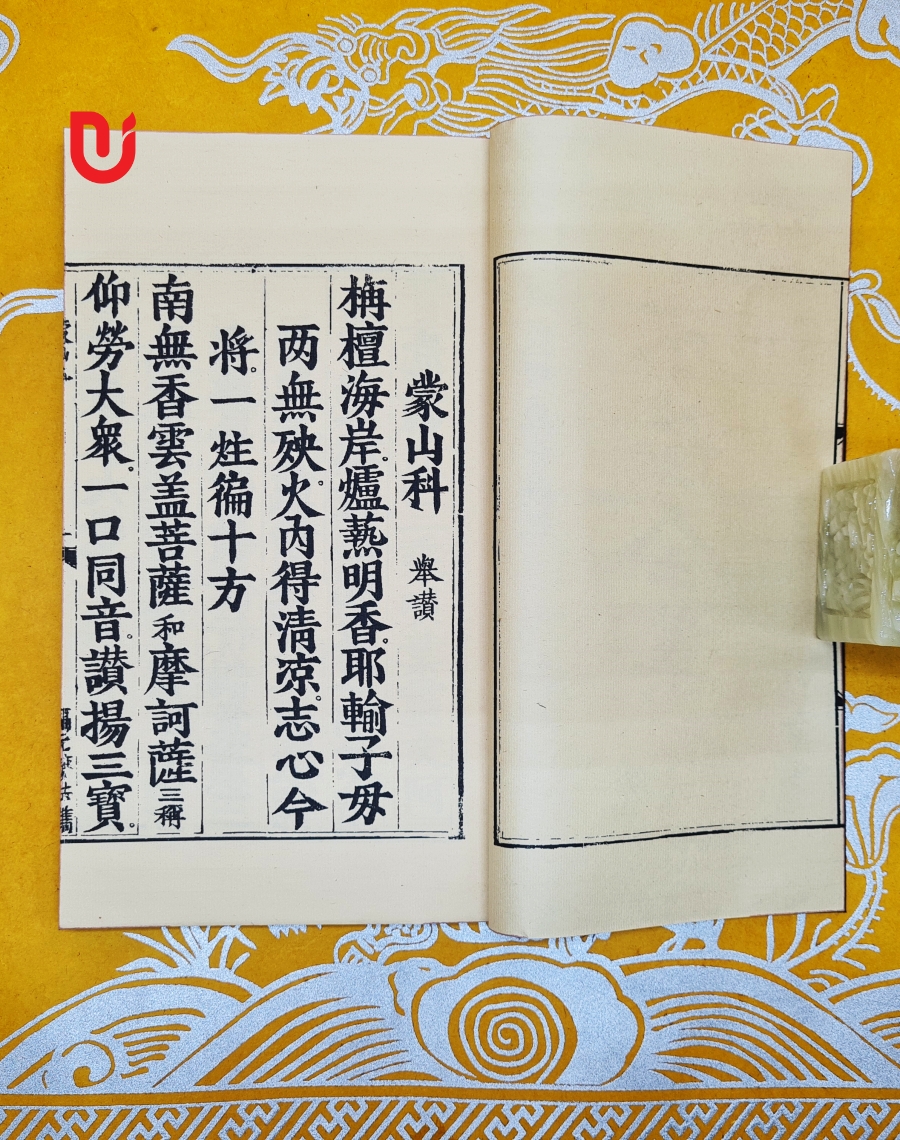 蒙山科 舉讃
栴檀海岸。爐爇明香。耶輸子毋
两無殃。火內得清凉。志心今
将。一炷徧十方
南無香雲盖菩薩和摩訶薩三稱
仰勞大衆。一口同音。讃揚三寶。